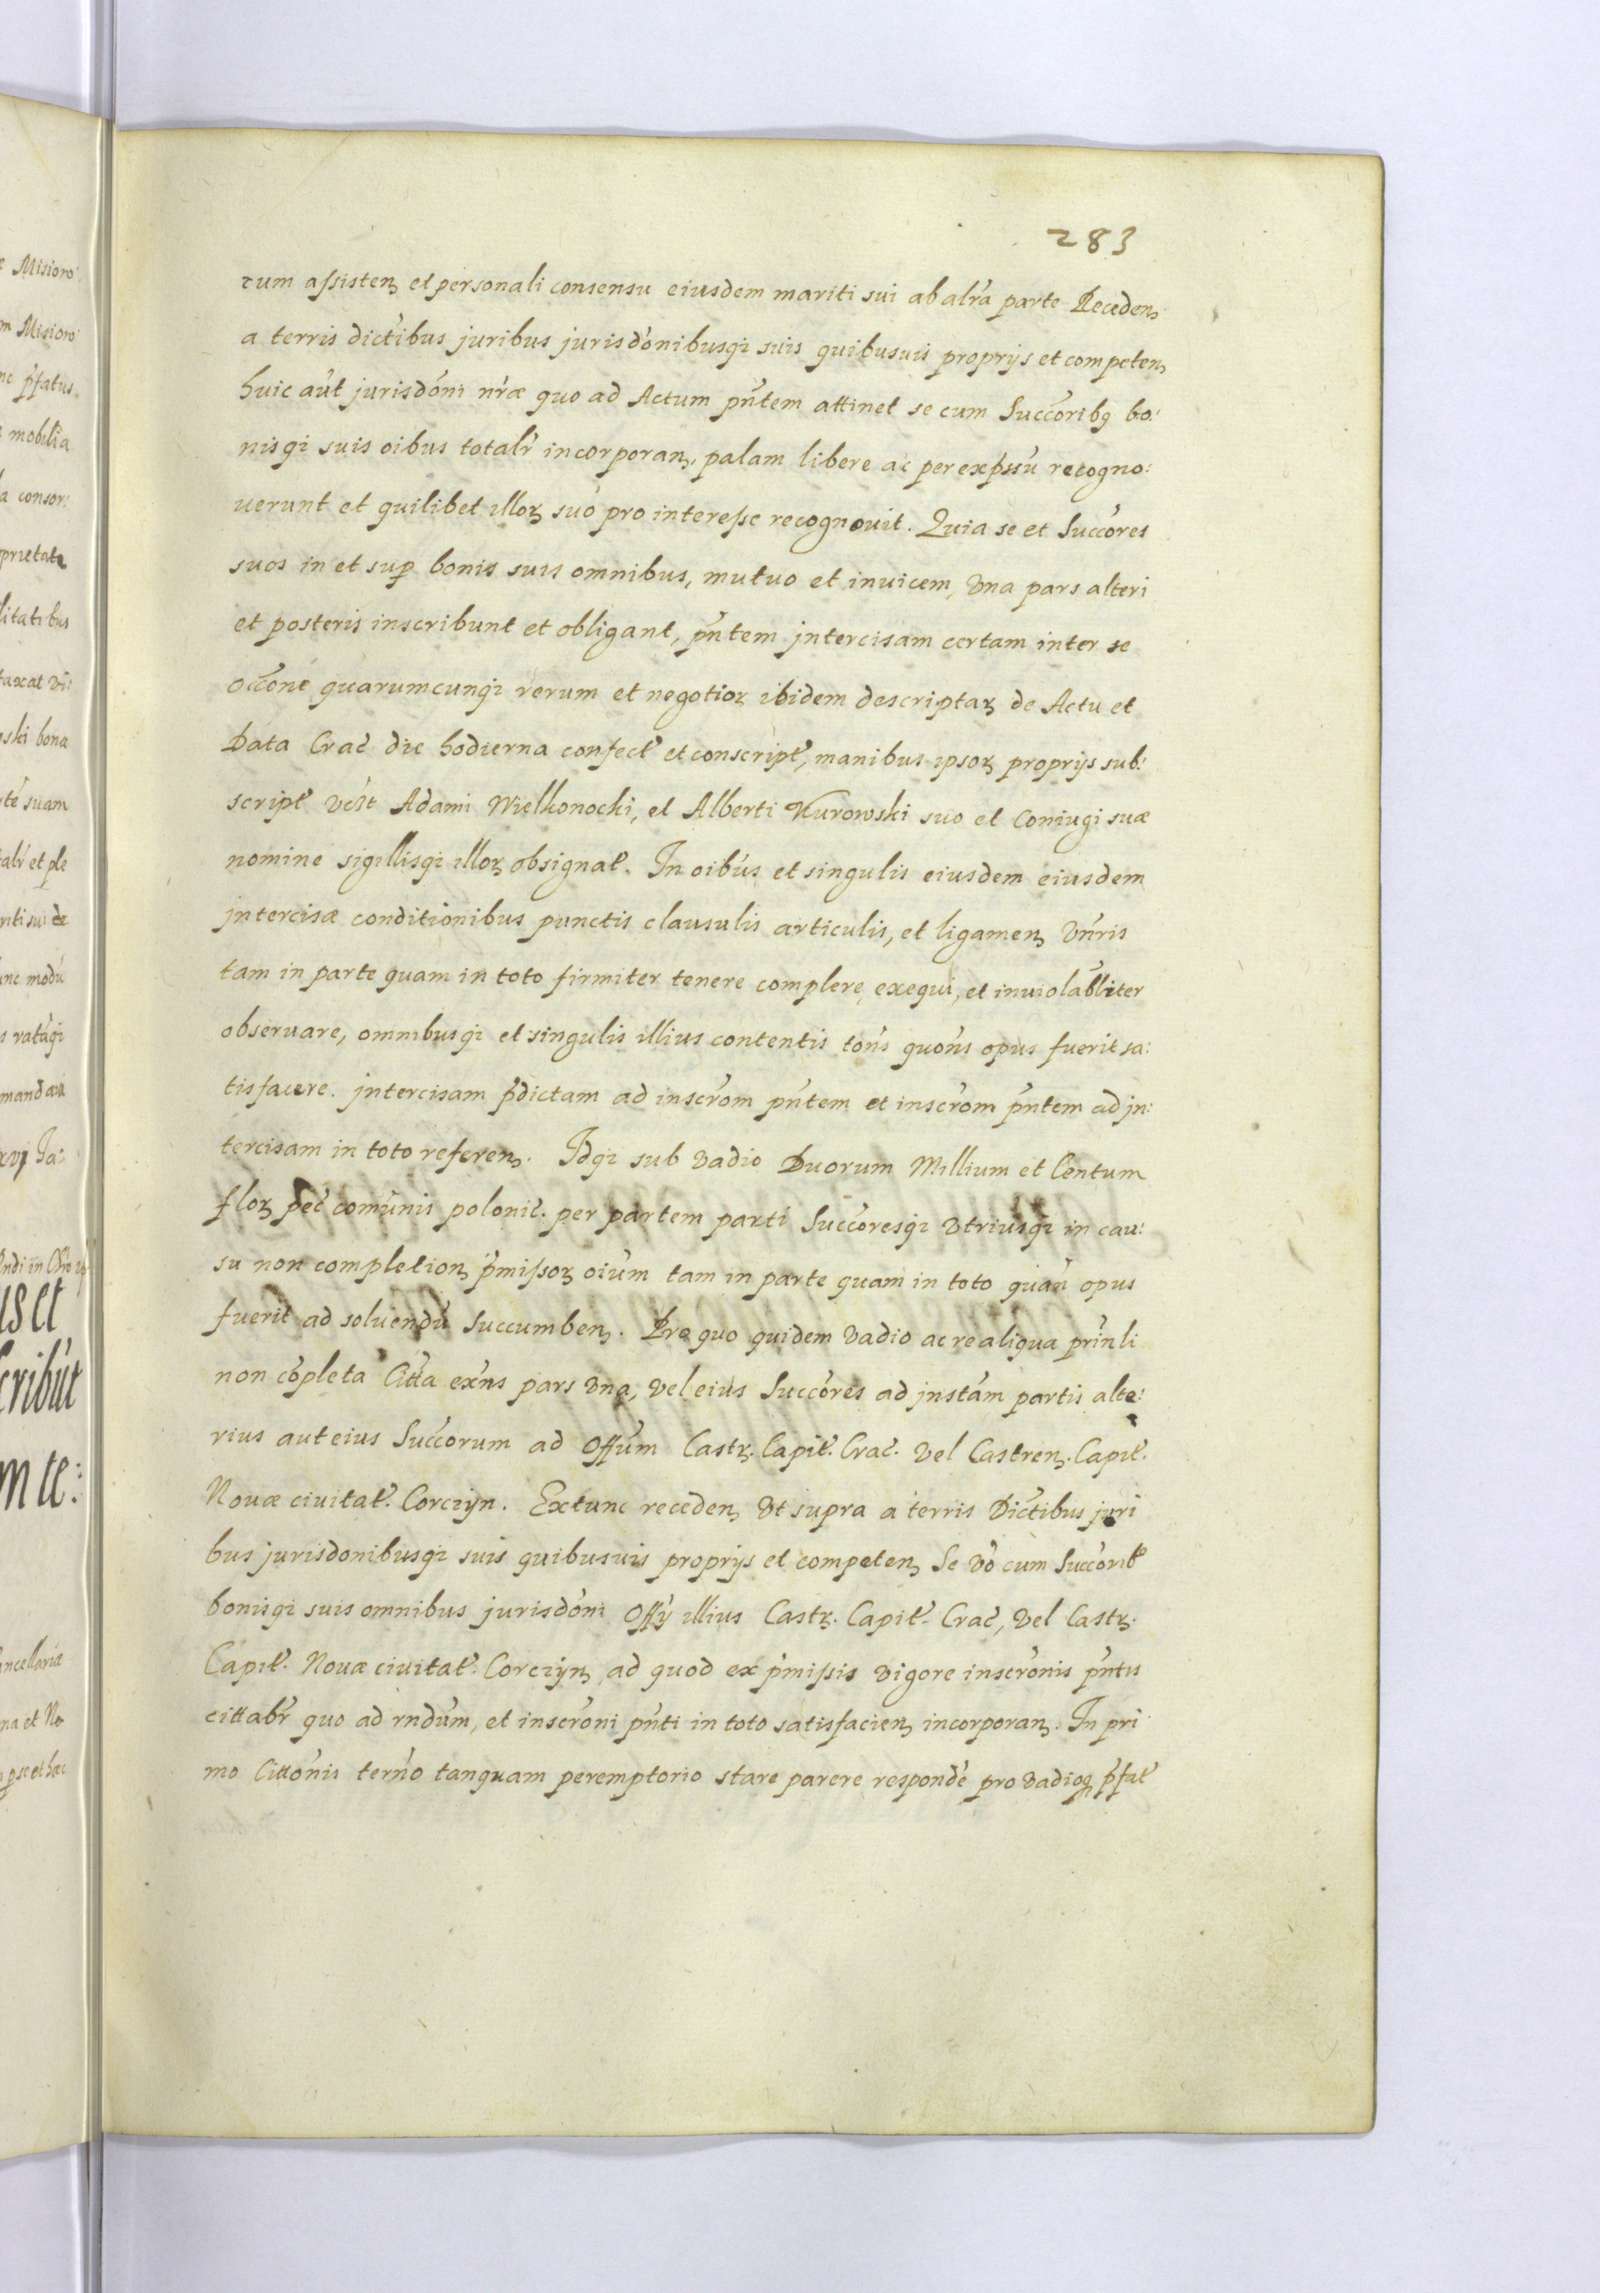 283
rum assisten et personali consensu eiusdem mariti sui ab alrã parte Receden
a terris dictibus juribus jurisdónibusqꝫ suis quibusuis proprÿs et competen
huic aũt jurisdóni nr̃æ quo ad Actum pñtem attinet se cum Succoribꝫ bo:
nisqꝫ suis oibus totalr̃ incorporan, palam libere ac per expssũ recogno:
uerunt et quilibet illoꝝ suo pro interesse recognouit. Quia se et Succores
suos in et sup bonis suis omnibus, mutuo et inuicem, vna pars alteri
et posteris inscribunt et obligant, pñtem jntercisam certam inter se
occóne quarumcunqꝫ rerum et negotioꝝ ibidem descriptaꝝ de Actu et
Data Crac̃ die hodierna confect̃ et conscript̃, manibus ipsoꝝ proprÿs sub:
script̃ vcłt Adami Wielkonocki, et Alberti Kurowski suo et Coniugi suæ
nomine sigillisqꝫ illoꝝ obsignat̃. In oibus et singulis eiusdem eiusdem
jntercisæ conditionibus punctis clausulis articulis, et ligamen vñris
tam in parte quam in toto firmiter tenere complere exequi, et inuiolabliter
obseruare, omnibusqꝫ et singulis illius contentis tón̄s quón̄s opus fuerit sa:
tisfacere. jntercisam p̃dictam ad inscróm pñtem et inscróm pñtem ad jn:
tercisam in toto referen. Idqꝫ sub vadio Duorum Millium et Centum
floꝝ pec̃ comũnis polonic̃. per partem parti Succoresqꝫ vtriusqꝫ in cau:
su non completion p̃missoꝝ oium tam in parte quam in toto quañ opus
fuerit ad soluendũ Succumben. Pro quo quidem vadio ac re aliqua prĩnli
non cõpleta Citta exñs pars vna, vel eius Succores ad jnstam partis alte:
rius aut eius Succorum ad Offum Castꝝ. Capit̃. Crac̃. vel Castren. Capit̃.
Nouæ ciuitat̃. Corczyn. Extunc receden vt supra a terris Dictibus juri
bus jurisdonibusqꝫ suis quibusuis proprÿs et competen Se vo cum Succorib̃
bonisqꝫ suis omnibus jurisdóni Offÿ illius Castꝝ. Capit̃. Crac̃, vel Castꝝ.
Capit̃. Nouæ ciuitat̃. Corczyn ad quod ex p̃missis vigore inscrónis pñtis
cittabr̃ quo ad rndũm, et inscróni pñti in toto satisfacien incorporan. In pri
mo Cittónis terño tanquam peremptorio stare parere respondẽ pro vadioqꝫ p̃fat̃